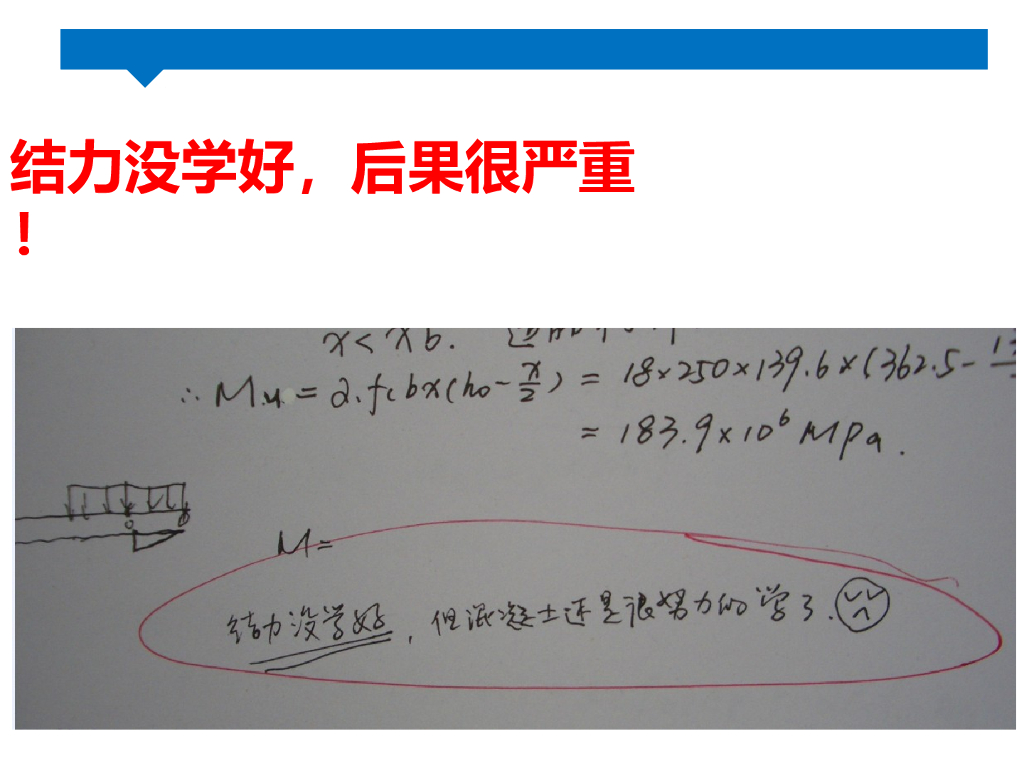 结力没学好，后果很严重
！
x < xb.
∴ Mu = α1fcbx(h0 - x/2) = 18×250×139.6×(362.5-
= 183.9×10⁶ MPa.
M=
结力没学好，但混凝土还是很努力的学了.